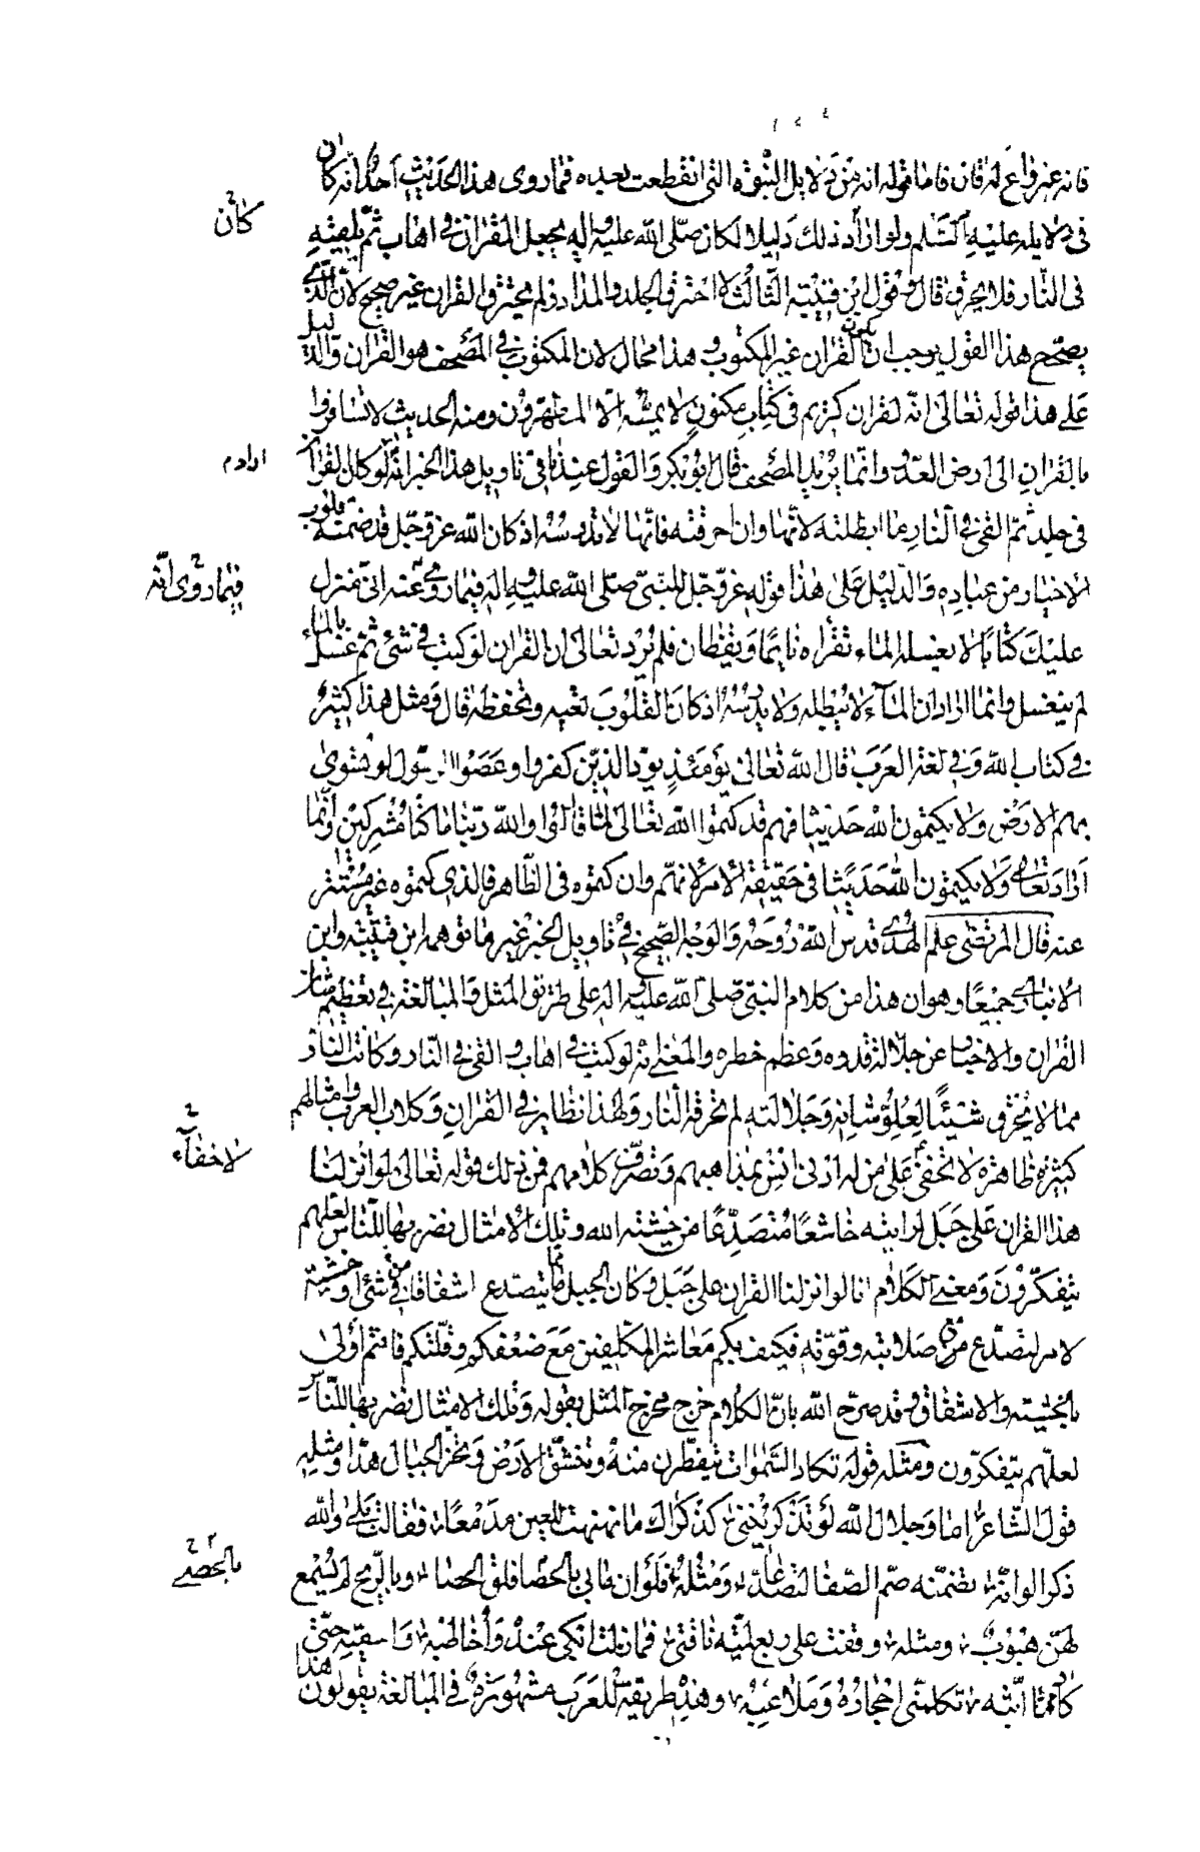 فانه غير واع له قال فاما قوله انه من دلايل النبوة التى انقطعت بعده فما روى هذا الحديث احد انه كان
فى دلايله عليه السلم ولو اراد ذلك دليلا لكان صلى الله عليه واله يجعل القران فى اهاب ثم يلقيه
فى النار فلا يحرق قال وقول ابن قتيبة الثالث لاحترق الجلد والمداد ولم يحترق القران غير صحيح لان الذى
يصحح هذا القول يوجب ان يكون القران غير المكتوب وهذا محال لان المكتوب فى المصحف هو القران والدليل
على هذا قوله تعالى انه لقران كريم فى كتاب مكنون لا يمسه الا المطهرون ومنه الحديث لا تسافروا
بالقران الى ارض العدو وانما يريد المصحف قال ابو بكر والقول عندنا فى تاويل هذا الخبر انه لو كان القران
فى جلد ثم القى فى النار ما ابطلته لانها وان احرقته فانها لا تدرسه اذ كان الله عز وجل قد ضمنه قلوب
الاخيار من عباده والدليل على هذا قوله عز وجل للنبى صلى الله عليه واله فيما روى عنه انى منزل
عليك كتابا لا يغسله الماء تقراه نايما ويقظان فلم يرد تعالى ان القران لو كتب فى شئ ثم غسل بالماء
لم ينغسل وانما اراد ان الماء لا يبطله ولا يدرسه اذ كان القلوب تعيه وتحفظه قال ومثل هذا كثير
فى كتاب الله وفى لغة العرب قال الله تعالى يومئذ يود الذين كفروا وعصوا الرسول لو تسوى
بهم الارض ولا يكتمون الله حديثا فهم قد كتموا الله تعالى لما قالوا والله ربنا ما كنا مشركين وانما
اراد تعالى ولا يكتمون الله حديثا فى حقيقة الامر لانهم وان كتموه فى الظاهر فالذى كتموه غير مستتر
عنه قال المرتضى علم الهدى قدس الله روحه والوجه الصحيح فى تاويل الخبر غير ما توهمه ابن قتيبة وابن
الانبارى جميعا وهو ان هذا من كلام النبى صلى الله عليه واله على طريق المثل والمبالغة فى تعظيم شان
القران والاخبار عن جلالة قدره وعظم خطره والمعنى انه لو كتب فى اهاب والقى فى النار وكانت النار
مما لا يحرق شيئا لعلو شانه وجلالته لم تحرقه النار ولهذا نظاير فى القران وكلام العرب وامثالهم
كثيرة ظاهرة لا تخفى على من له ادنى انس بمذاهبهم وتصرف كلامهم فمن ذلك قوله تعالى لو انزلنا
هذا القران على جبل لرايته خاشعا متصدعا من خشية الله وتلك الامثال نضربها للناس لعلهم
يتفكرون ومعنى الكلام انا لو انزلنا القران على جبل وكان الجبل مما يتصدع اشفاقا من شئ او خشية
لامر لتصدع من صلابته وقوته فكيف بكم معاشر المكلفين مع ضعفكم وقلتكم فانتم اولى
بالخشية والاشفاق وقد صرح الله بان الكلام خرج مخرج المثل بقوله وتلك الامثال نضربها للناس
لعلهم يتفكرون ومثله قوله تكاد السموات يتفطرن منه وتنشق الارض وتخر الجبال هدا ومثله
قول الشاعر اما وجلال الله لو تذكرينى كذكراك ما نهنهت للعين مدمعا فقالت بلى والله
ذكرا لو انه تضمنه صم الصفا لتصدعا ومثله فلو ان ما بى بالحصا فلق الحصا وبالريح لم يسمع
لهن هبوب ومثله وقفت على ربع لمية ناقتى فما زلت ابكى عنده واخاطبه واسقيه حتى
كاد مما ابثه تكلمنى احجاره وملاعبه وهذه طريقة للعرب مشهورة فى المبالغة يقولون هذا
كان
اراد م
فيما روى انه
لا خفاء
بالحصى